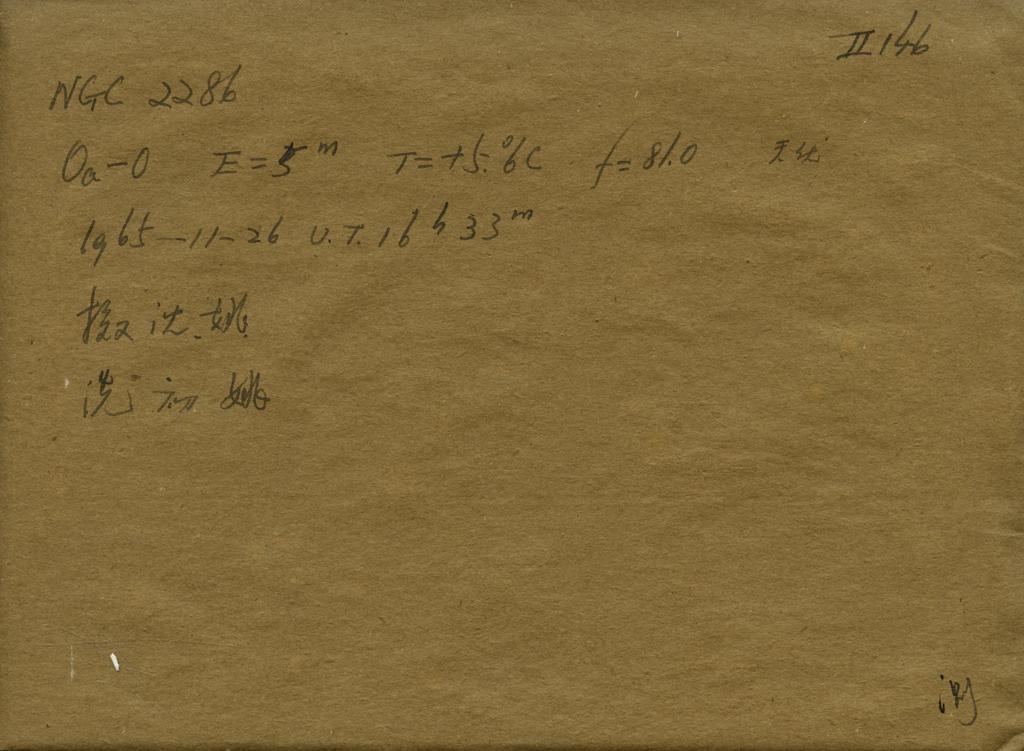 II 146
NGC 2286
Oa-O E=5m T=+5.°6C f=81.0 天优
1965-11-26 U.T. 16h33m
摄 沈.姚
洗 初 姚
测